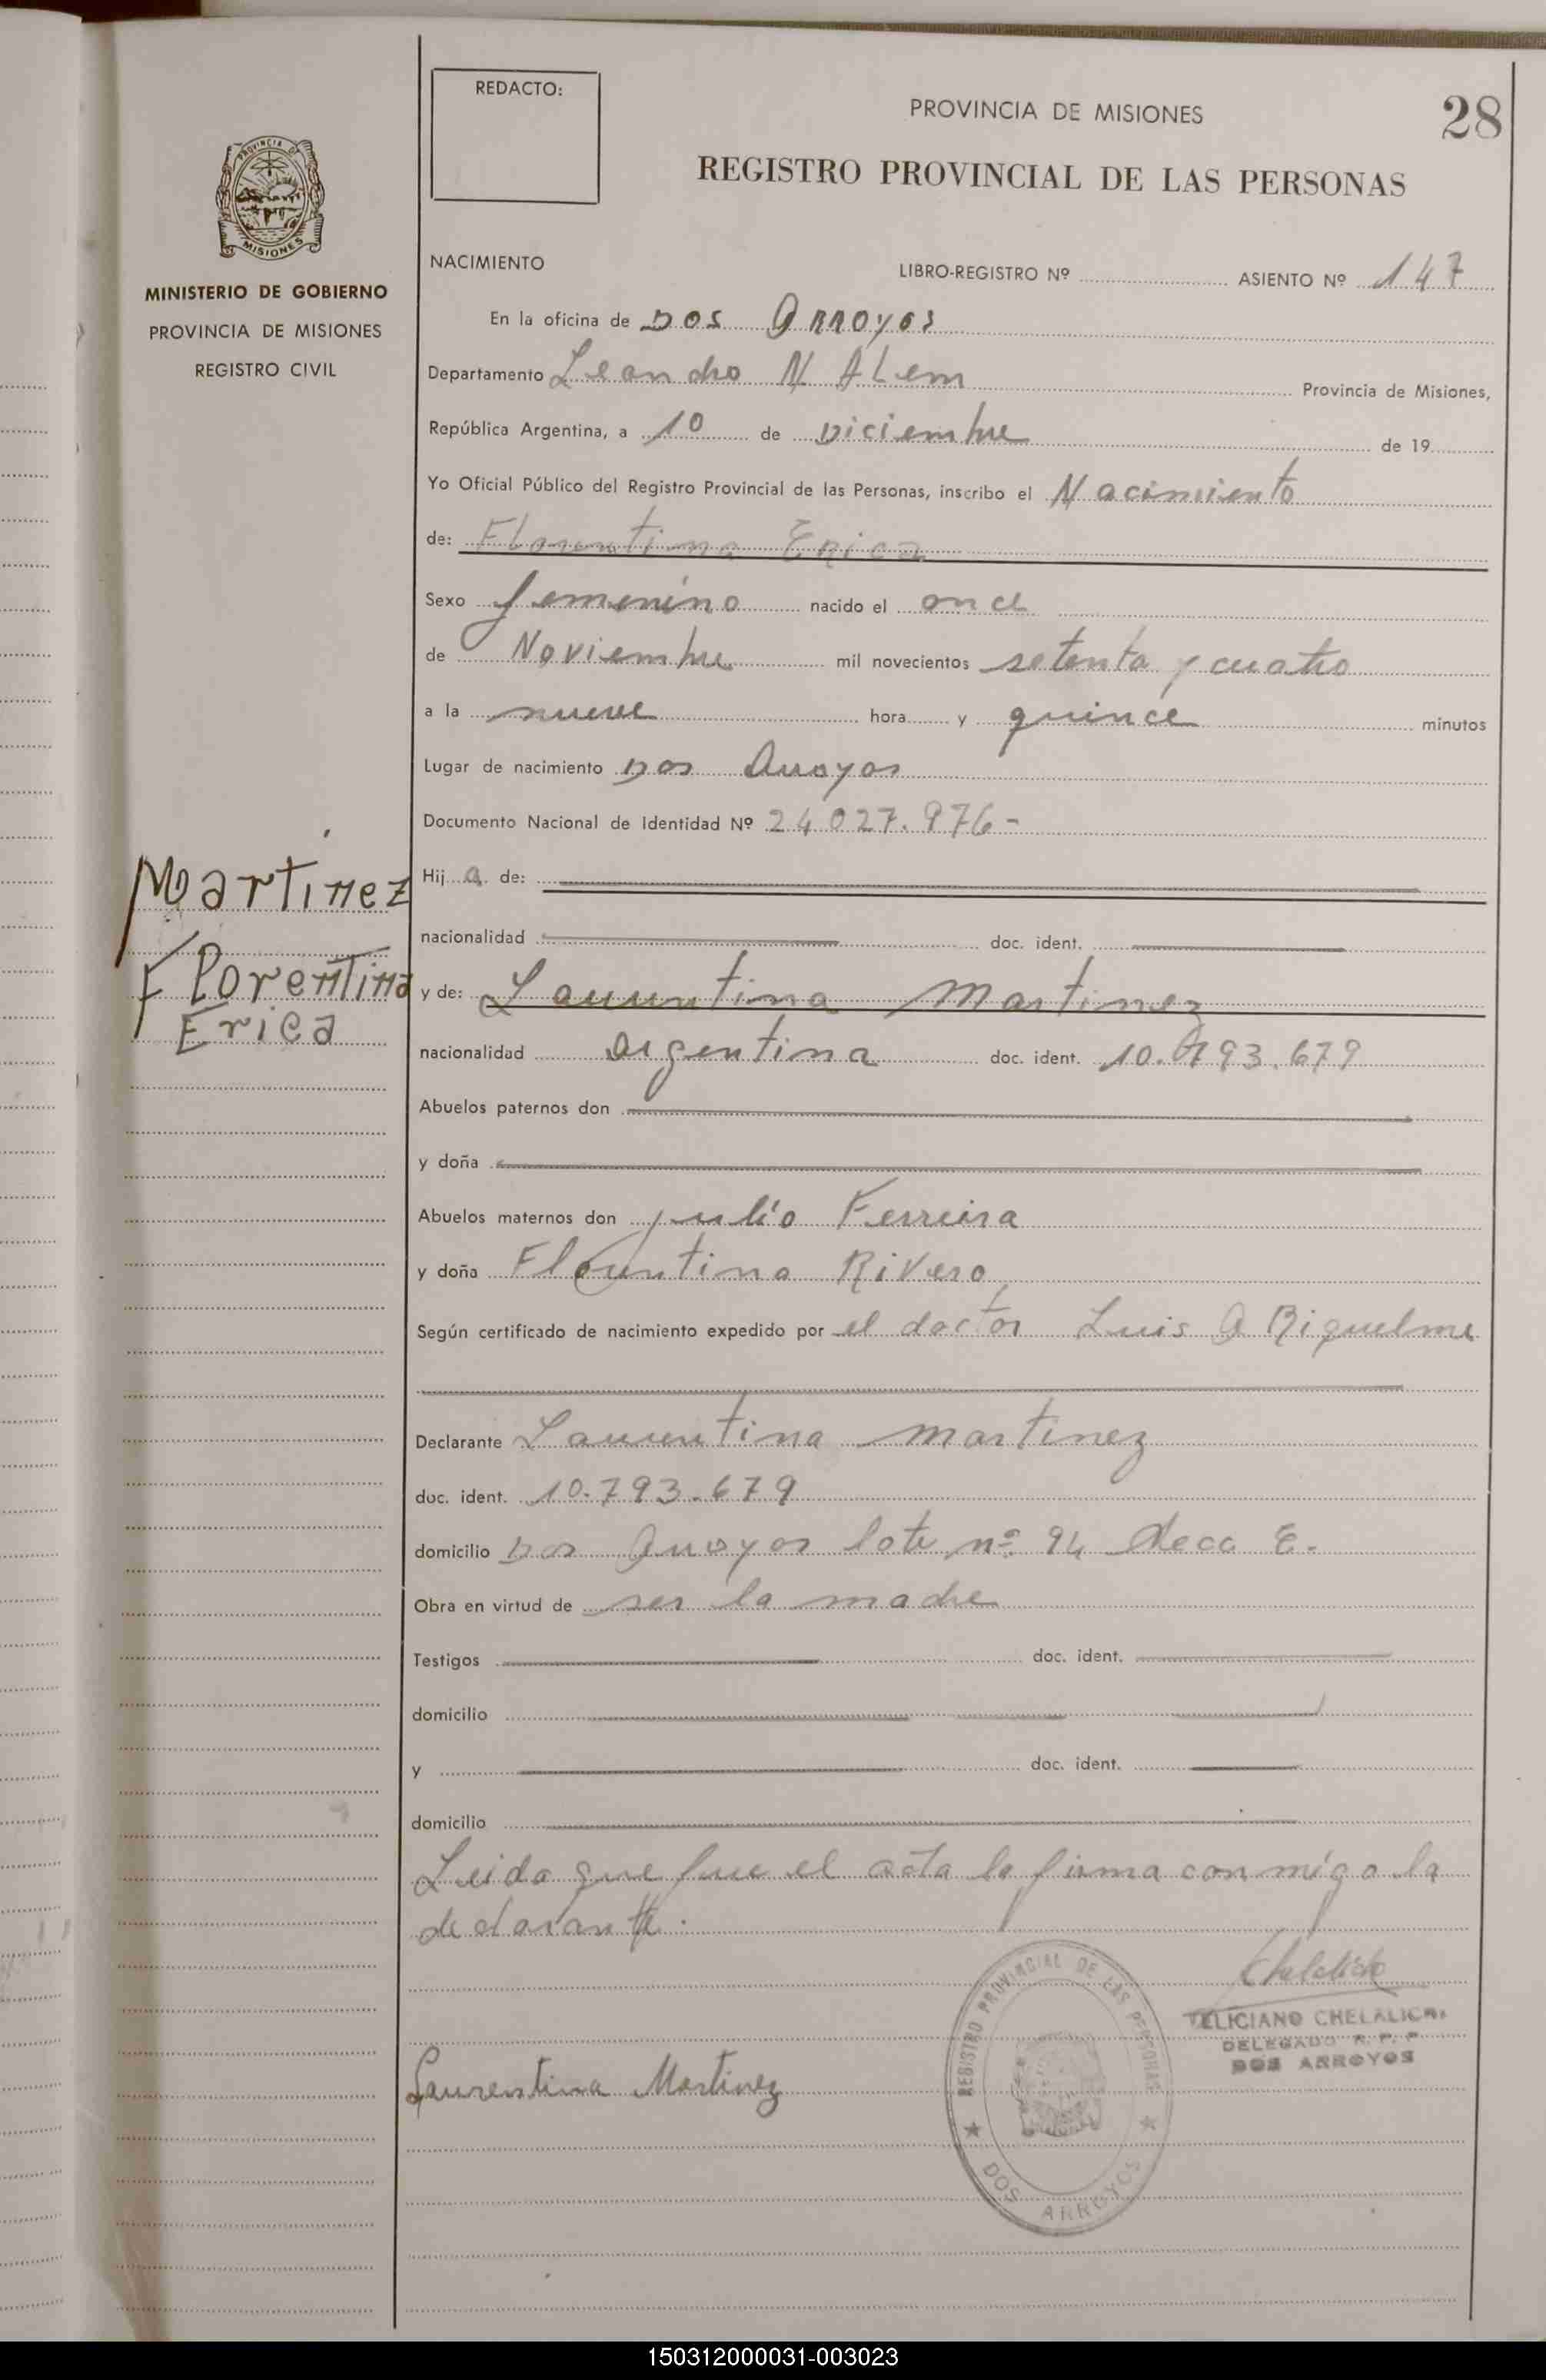 REDACTO:
PROVINCIA DE MISIONES
28
REGISTRO PROVINCIAL DE LAS PERSONAS
PROVINCIA DE
MISIONES
MINISTERIO DE GOBIERNO
PROVINCIA DE MISIONES
REGISTRO CIVIL
NACIMIENTO
LIBRO-REGISTRO Nº ASIENTO Nº 147
En la oficina de Dos Arroyos
Departamento Leandro N Alem Provincia de Misiones,
República Argentina, a 10 de Diciembre de 19
Yo Oficial Público del Registro Provincial de las Personas, inscribo el Nacimiento
de: Florentina Erica
Sexo femenino nacido el once
de Noviembre mil novecientos setenta y cuatro
a la nueve hora y quince minutos
Lugar de nacimiento Dos Arroyos
Documento Nacional de Identidad Nº 24.027.976-
Hij a de:
nacionalidad doc. ident.
Martinez
Florentina
Erica
y de: Laurentina Martinez
nacionalidad argentina doc. ident. 10.793.679
Abuelos paternos don
y doña
Abuelos maternos don Julio Ferreira
y doña Florentina Rivero
Según certificado de nacimiento expedido por el doctor Luis A Riquelme
Declarante Laurentina Martinez
doc. ident. 10.793.679
domicilio Dos Arroyos lote nº 94 E.
Obra en virtud de ser la madre
Testigos doc. ident.
domicilio
y doc. ident.
domicilio
Leido que fue el acta la firma conmigo la
declarante.
FELICIANO CHELALICH
DELEGADO R. P. P.
DOS ARROYOS
REGISTRO PROVINCIAL DE LAS PERSONAS
DOS ARROYOS
Laurentina Martinez
150312000031-003023